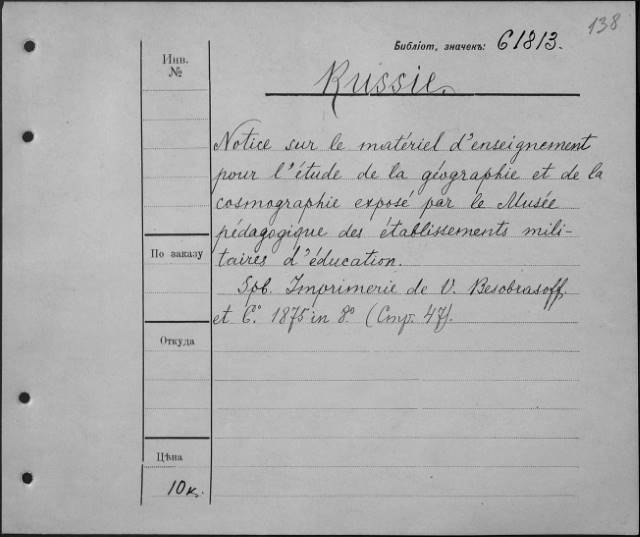 138
Библіот. значекъ: 61813.
Инв.
№
Russie.
Notice sur le matériel d'enseignement
pour l'étude de la géographie et de la
cosmographie exposé par le Musée
pédagogique des établissements mili-
taires d'éducation.
По заказу
Spb. Imprimerie de V. Besobrasoff
et Cº. 1875 in 8º. (Стр. 47).
Откуда
Цѣна
10 к.